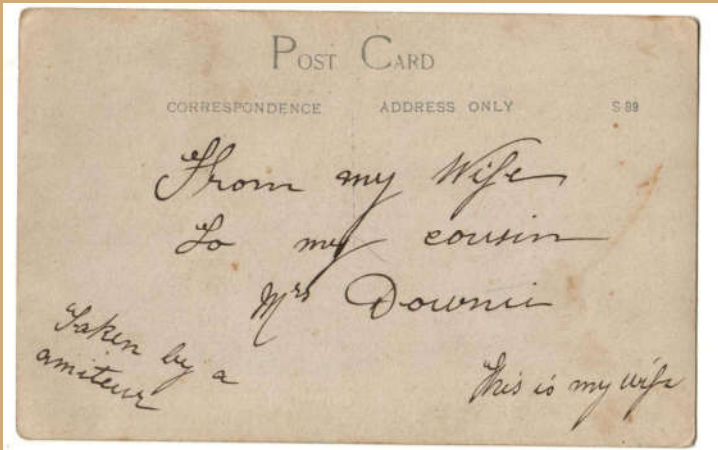 POST CARD
CORRESPONDENCE ADDRESS ONLY S 99
From my Wife
To my cousin
Mrs Downie
Taken by a
amiteur
This is my wife